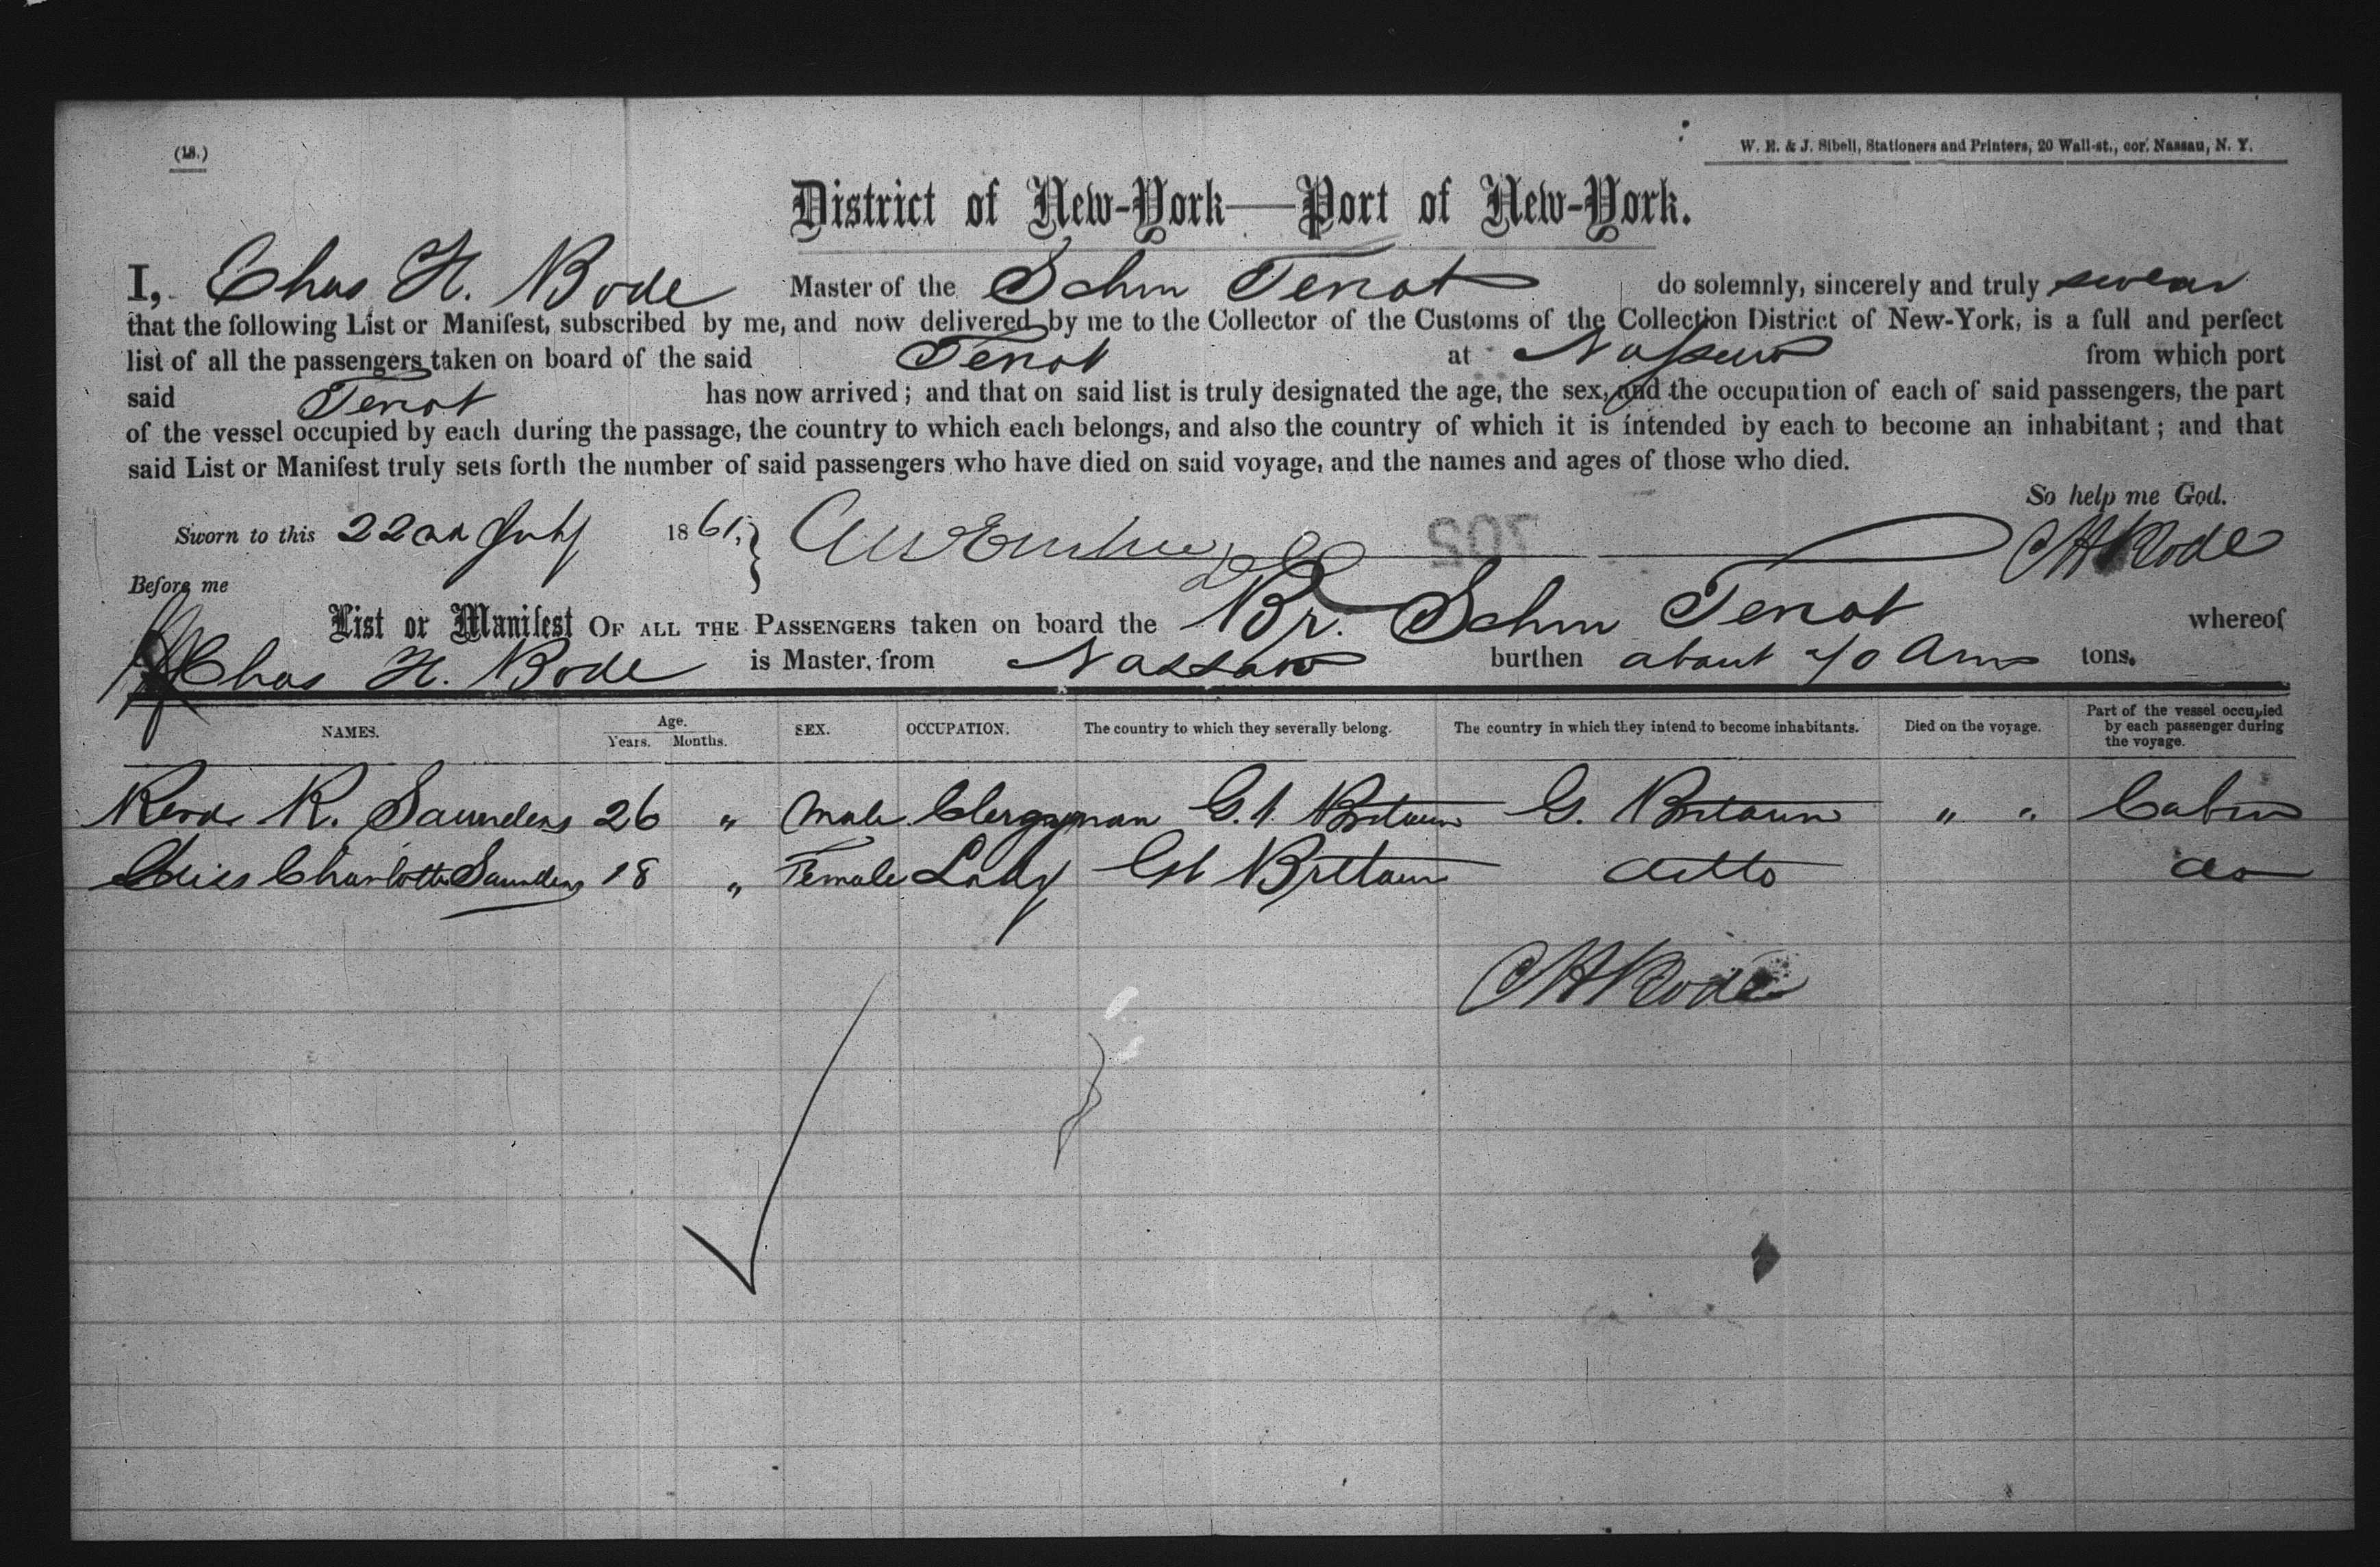 (18.)
W. E. & J. Sibell, Stationers and Printers, 20 Wall-st., cor. Nassau, N. Y.
District of New-York—Port of New-York.
I, Chas H. Bode Master of the Schn Tenot do solemnly, sincerely and truly swear
that the following List or Manifest, subscribed by me, and now delivered by me to the Collector of the Customs of the Collection District of New-York, is a full and perfect
list of all the passengers taken on board of the said Tenot at Nassau from which port
said Tenot has now arrived; and that on said list is truly designated the age, the sex, and the occupation of each of said passengers, the part
of the vessel occupied by each during the passage, the country to which each belongs, and also the country of which it is intended by each to become an inhabitant; and that
said List or Manifest truly sets forth the number of said passengers who have died on said voyage, and the names and ages of those who died.
So help me God.
Sworn to this 22nd July 1861, CH Bode
Before me
702
List or Manifest OF ALL THE PASSENGERS taken on board the Br. Schn Tenot whereof
Chas H. Bode is Master, from Nassau burthen about 70 tons.
NAMES. Age. Years. Months. SEX. OCCUPATION. The country to which they severally belong. The country in which they intend to become inhabitants. Died on the voyage. Part of the vessel occupied by each passenger during the voyage.
Revd. R. Saunders 26 " Male Clergyman G. t. Britain G. Britain " " Cabin
Miss Charlotte Saunders 18 " Female Lady Gt Brittain ditto do
CH Bode